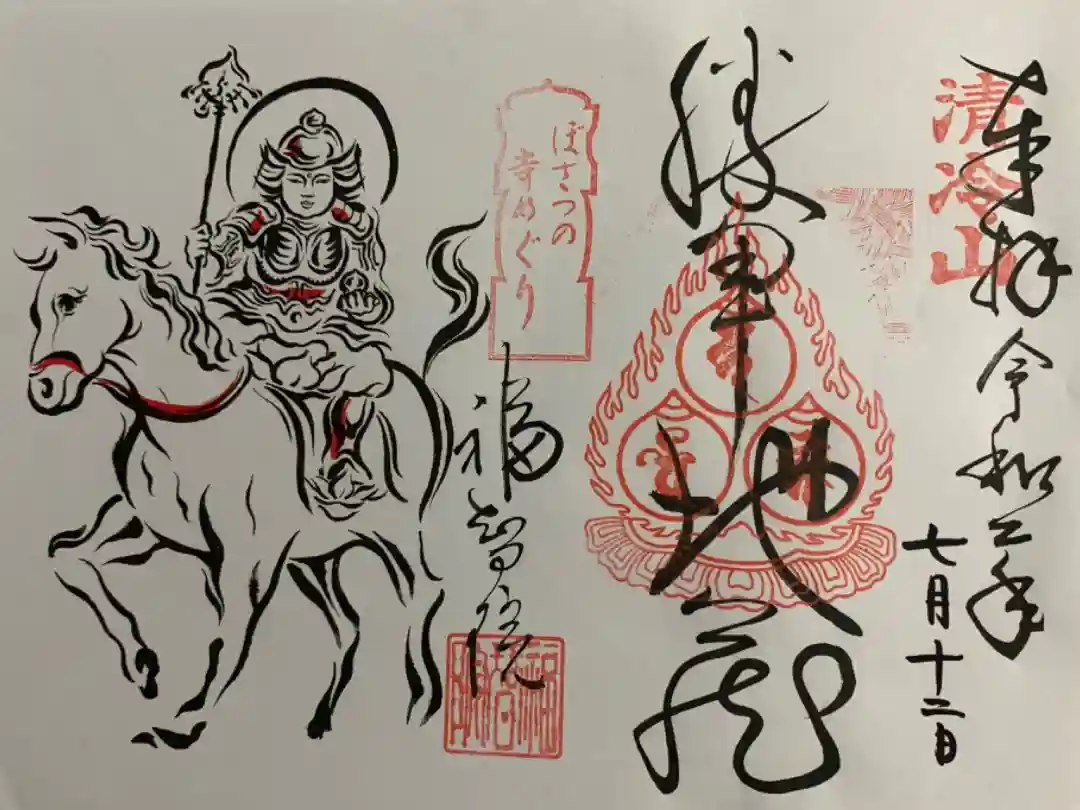 奉拝 令和二年
七月十二日
清冷山
勝軍地蔵
ぼさつの
寺めぐり
福智院
福智院